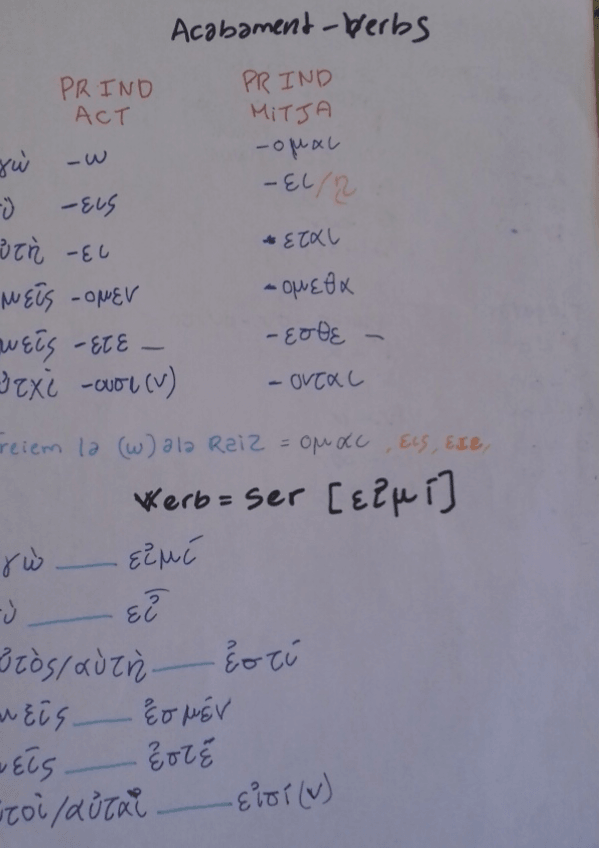 Acabament - Verbs
PR IND PR IND
ACT MiTJA
γώ -ω -ομαι
ύ -εις -ει/η
ὐτὴ -ει -εται
μεῖς -ομεν -ομεθα
μεῖς -ετε — -εσθε —
ὐταὶ -ουσι(ν) -ονται
reiem la (ω) a la Raiz = ομαι, εις, ετε,
Verb = ser [εἰμί]
γὼ — εἰμί
ὺ — εἶ
ὐτὸς/αὐτὴ — ἐστί
μεῖς — ἐσμέν
μεῖς — ἐστέ
ὐτοὶ/αὐταὶ — εἰσί(ν)